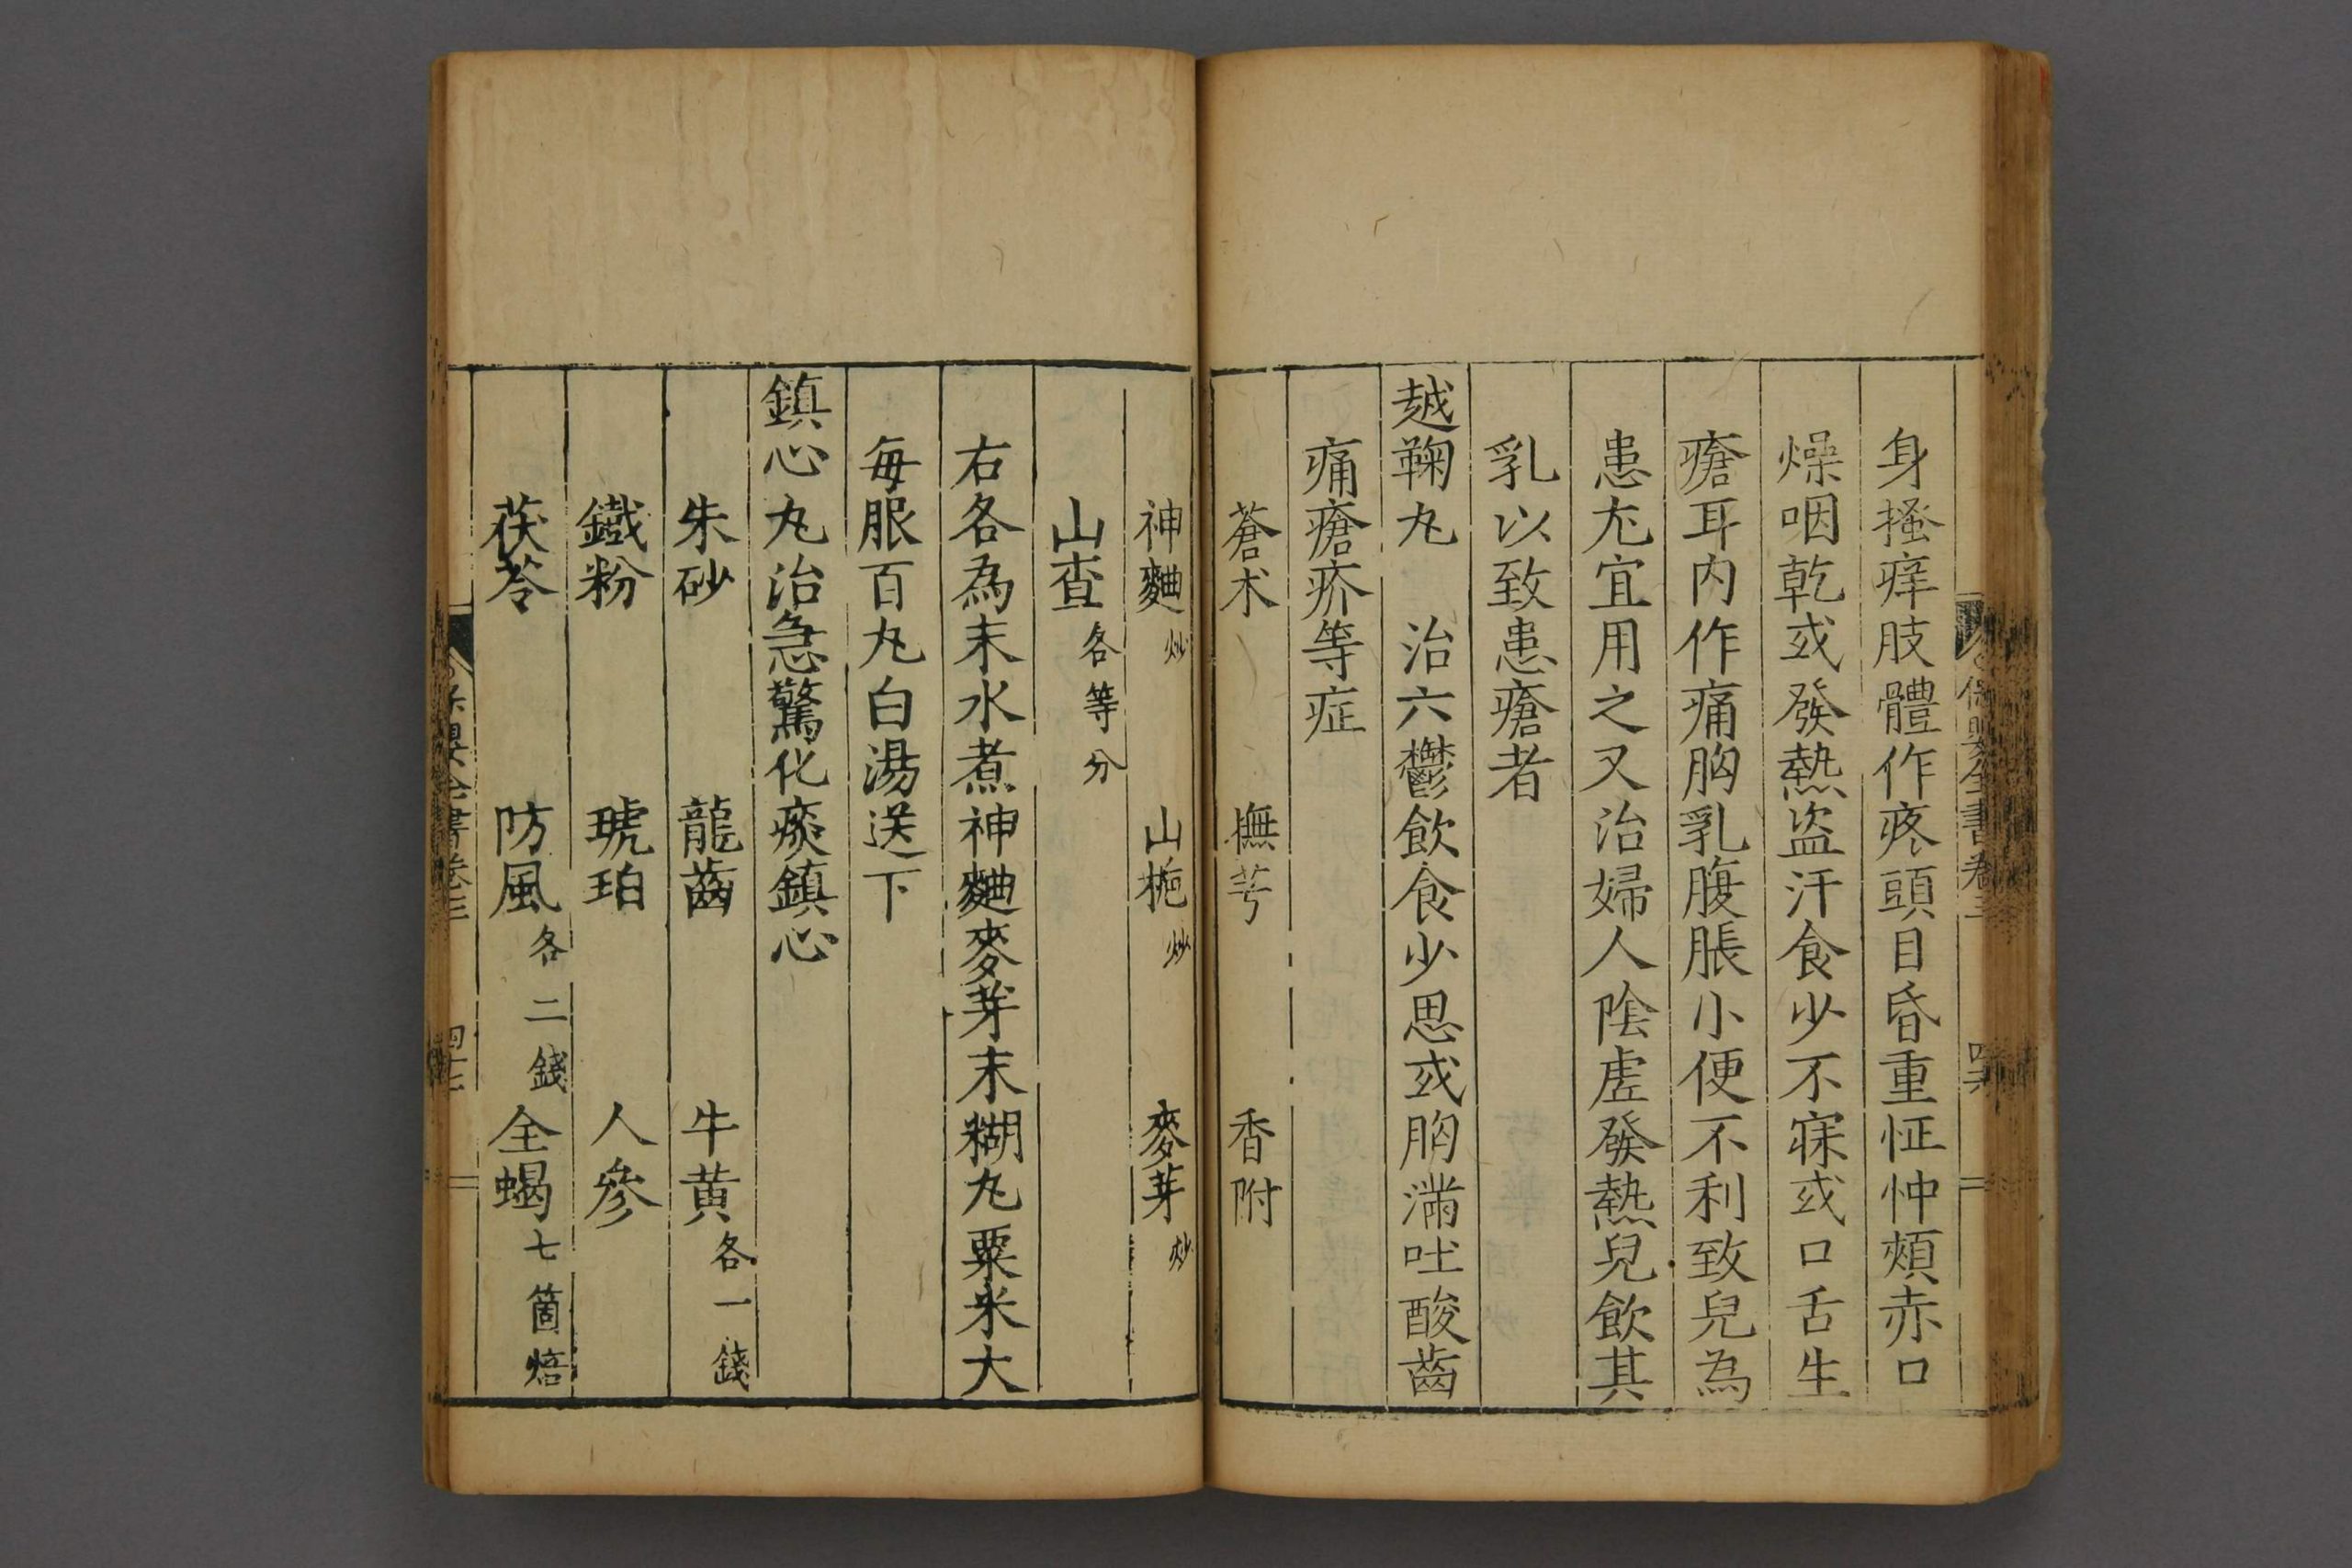 保嬰全書卷三
身搔痒肢體作疼頭目昏重怔忡頰赤口
燥咽乾或發熱盜汗食少不寐或口舌生
瘡耳內作痛胸乳腹脹小便不利致兒為
患尤宜用之又治婦人陰虛發熱兒飲其
乳以致患瘡者
越鞠丸 治六鬱飲食少思或胸滿吐酸齒
痛瘡疥等症
蒼术 撫芎 香附
神麯炒 山梔炒 麥芽炒
山查各等分
右各為末水煮神麯麥芽末糊丸粟米大
每服百丸白湯送下
鎮心丸治急驚化痰鎮心
朱砂 龍齒 牛黃各一錢
鐵粉 琥珀 人參
茯苓 防風各二錢 全蝎七箇焙
嬰全書卷三 四十七